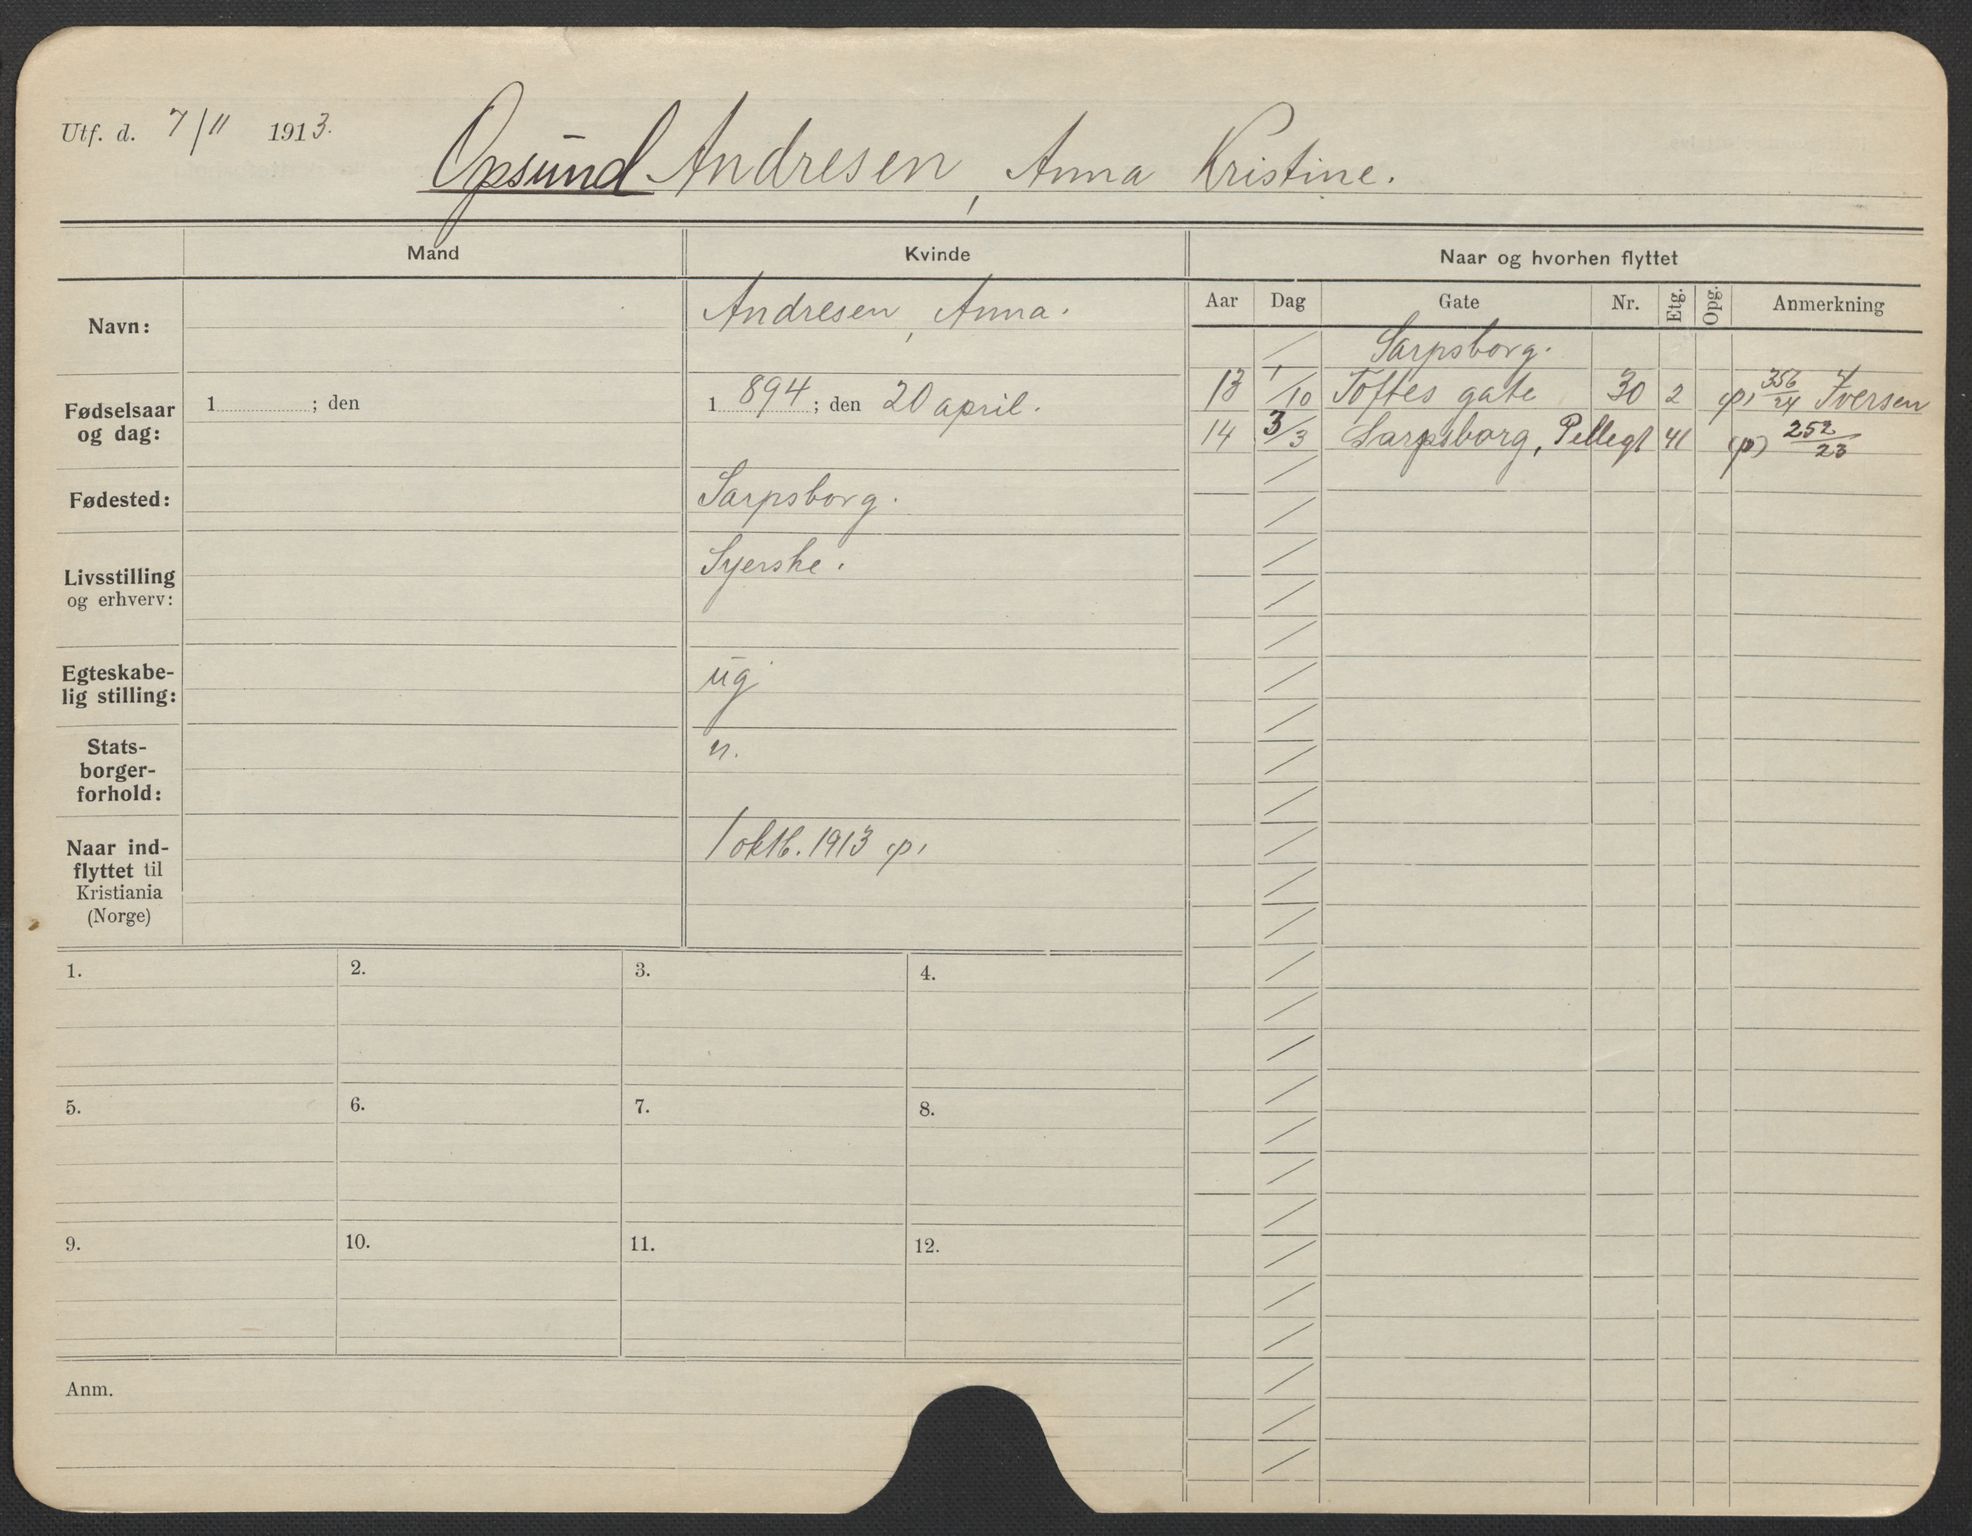 Utf. d. 7/11 1913.
Opsund Andresen, Anna Kristine.
Mand Kvinde Naar og hvorhen flyttet
Aar Dag Gate Nr. Etg. Opg. Anmerkning
Navn: Andresen, Anna.
Fødselsaar og dag: 1 ; den 1894 ; den 20 april.
Fødested: Sarpsborg.
Livsstilling og erhverv: Syerske.
Egteskabe-
lig stilling: ug
Stats-
borger-
forhold: n.
Naar ind-
flyttet til
Kristiania
(Norge) 1 oktb. 1913 (p)
Sarpsborg.
13 1/10 Toftes gate 30 2 (p) 356/24 Iversen
14 3/3 Sarpsborg, Pellegt 41 (p) 252/23
1. 2. 3. 4.
5. 6. 7. 8.
9. 10. 11. 12.
Anm.